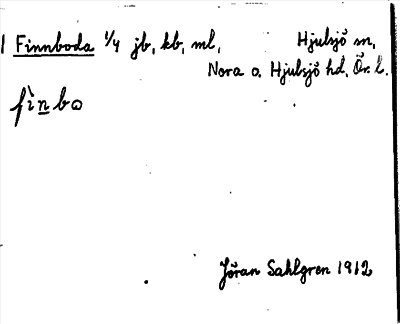 1 Finnboda 1/4 jb, kb, ml, Hjulsjö sn,
Nora o. Hjulsjö hd, Ör. l.
fìnbo
Jöran Sahlgren 1912